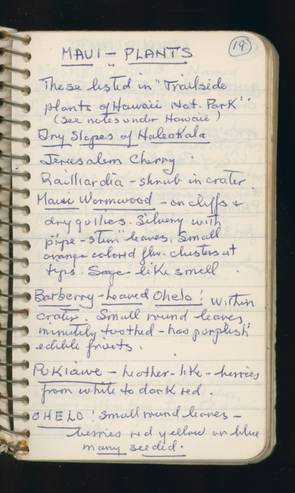 19
MAUI - PLANTS
These listed in "Trailside
plants of Hawaii Nat. Park"
(see notes under Hawaii)
Dry Slopes of Haleakala
Jerusalem Cherry
Railliardia - shrub in crater
Maui Wormwood - on cliffs &
dry gullies. Silvery with
"pipe-stem" leaves. Small
orange colored flw. clusters at
tips. Sage-like smell.
Barberry-leaved Ohelo! Within
crater. Small round leaves,
minutely toothed - has purplish
edible fruits.
Pukiawe - heather-like - berries
from white to dark red.
OHELO! Small round leaves -
berries red yellow or blue
many seeded.